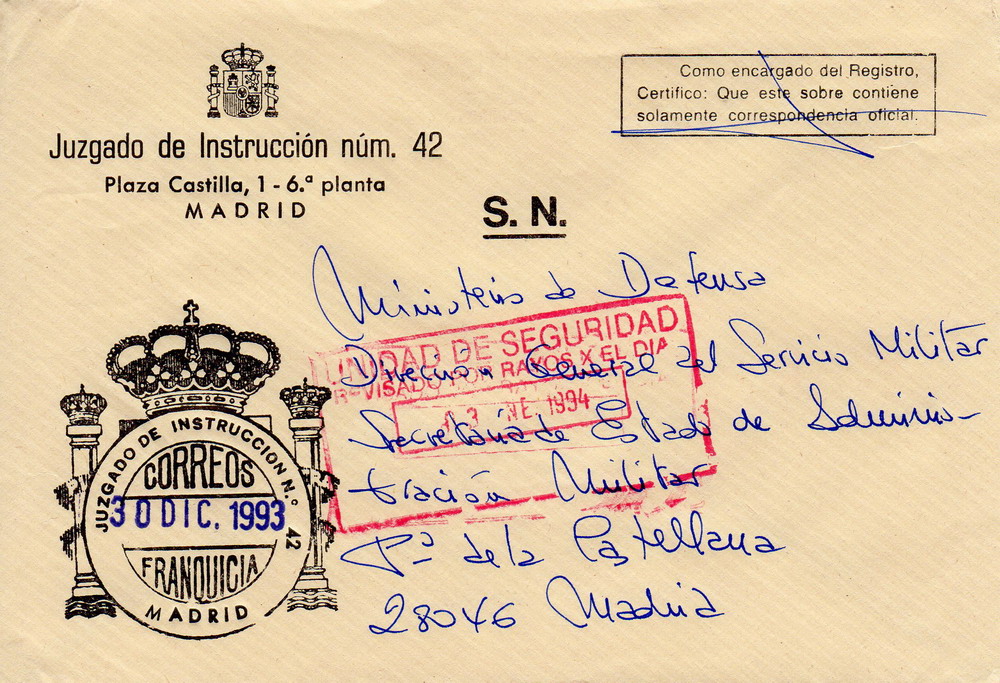 Juzgado de Instrucción núm. 42
Plaza Castilla, 1 - 6.ª planta
MADRID
Como encargado del Registro,
Certifico: Que este sobre contiene
solamente correspondencia oficial.
S. N.
Ministerio de Defensa
Dirección General del Servicio Militar
Secretaría de Estado de Adminis-
tración Militar
Pº de la Castellana
28046 Madrid
UNIDAD DE SEGURIDAD
REVISADO POR RAYOS X EL DIA
3 ENE 1994
JUZGADO DE INSTRUCCION N.º 42
CORREOS
30 DIC. 1993
FRANQUICIA
MADRID